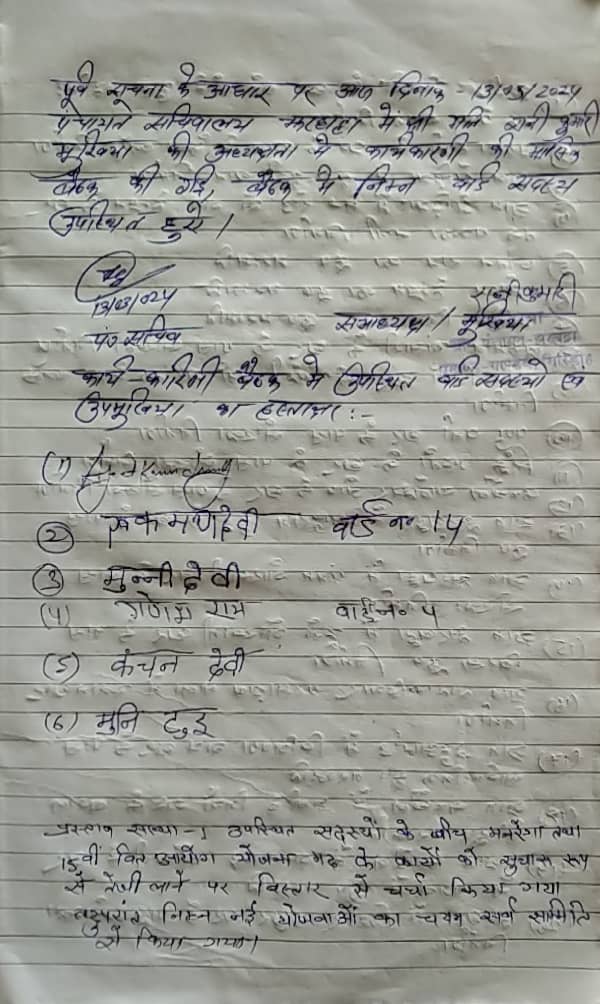 पूर्व सूचना के आधार पर आज दिनांक - 13/03/2024
पंचायत सचिवालय में श्री मति रानी कुमारी
मुखिया की अध्यक्षता में कार्यकारणी की मासिक
बैठक की गई, बैठक में निम्न वार्ड सदस्य
उपस्थित हुये।
13/03/024
रानी कुमारी
पं० सचिव
सभाध्यक्ष / मुखिया
कार्य-कारिणी बैठक में उपस्थित वार्ड सदस्यो एवं
उपमुखिया का हस्ताक्षर :-
(1)
(2) रूकमणी देवी वार्ड नं० 14
(3) मुन्नी देवी
(4) गणेश राम वार्ड न० 4
(5) कंचन देवी
(6) मुनि टुडू
प्रस्ताव संख्या - 1 उपस्थित सदस्यों के बीच मनरेगा तथा
15वीं वित आयोग योजना मद के कार्यों को सुचारू रूप
से तेजी लाने पर विस्तार से चर्चा किया गया
तत्पुपरांत निम्न नई योजनाओं का चयन सर्व सम्मिति
से किया गया।